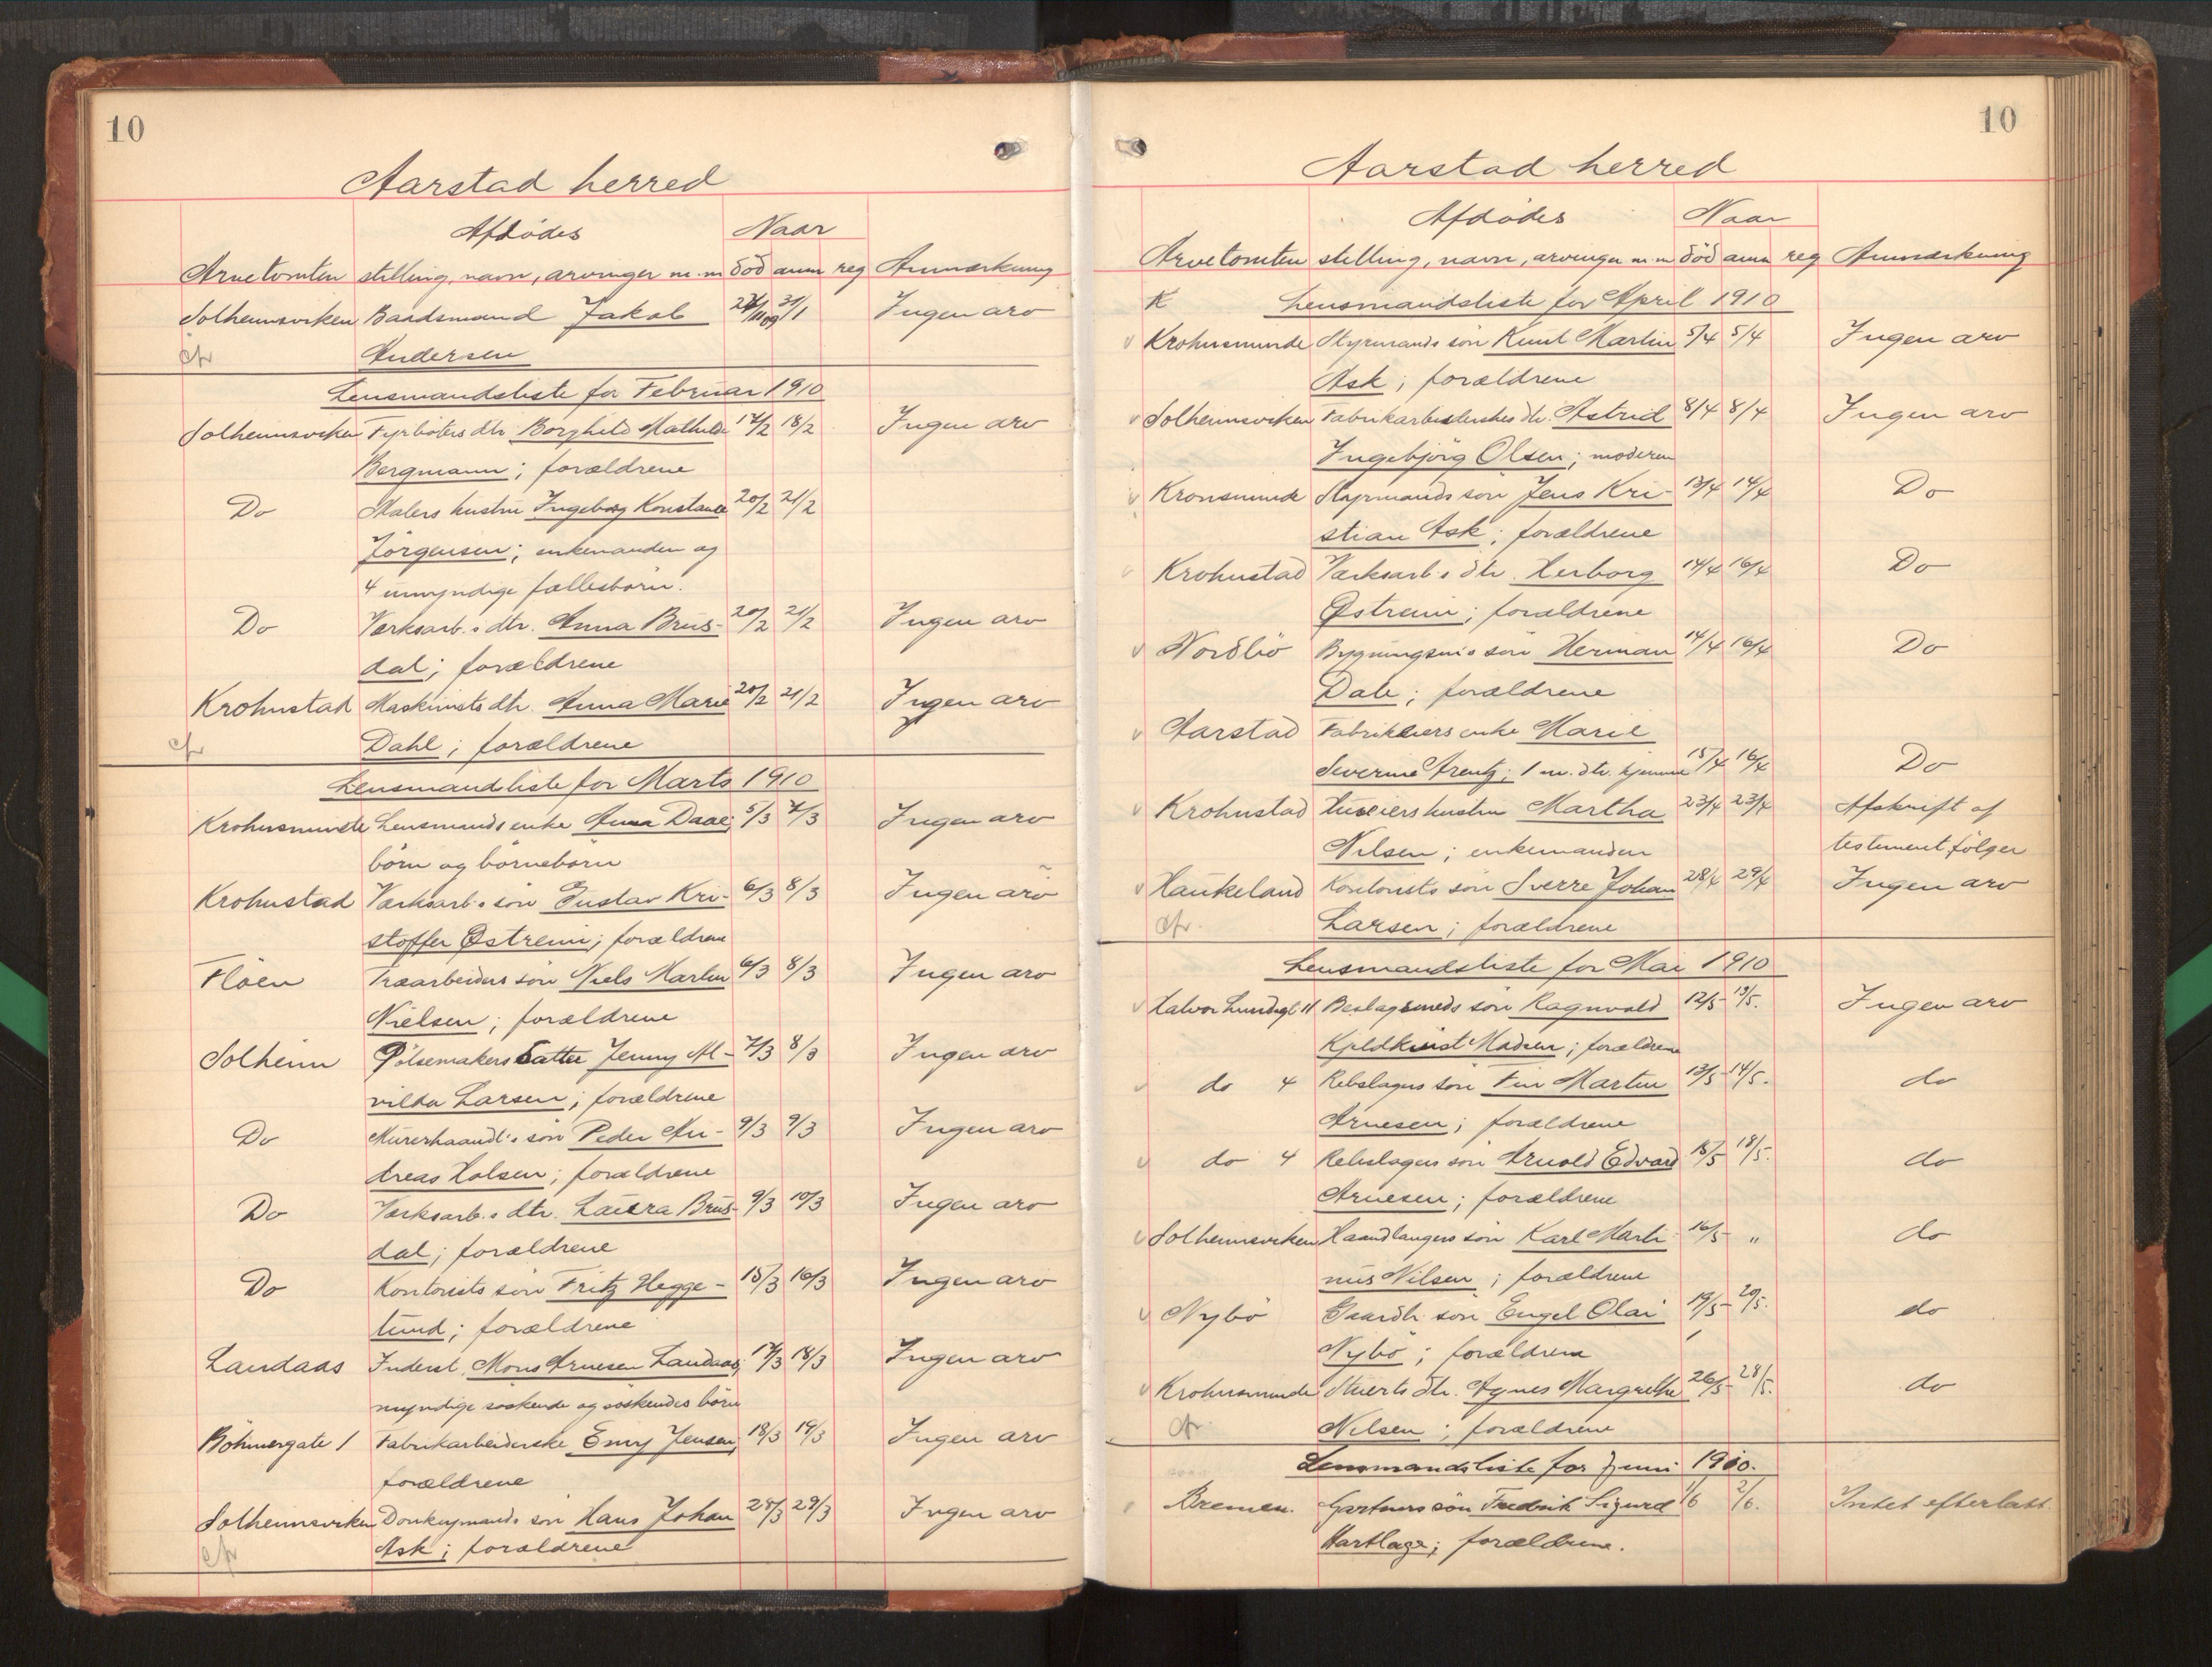 10
Aarstad herred
Afdødes Naar
Arvetomten stilling, navn, arvinger m.m død anm reg Anmerkning
Solheimsviken Baadsmand Jakob 24/11 09 31/1 Ingen arv
cfr Andersen
Lensmandsliste for Februar 1910
Solheimsviken Fyrbøters dtr. Borghild Mathilde 17/2 18/2 Ingen arv
Bergmann; forældrene
Do Malers hustru Ingeborg Konstanse 20/2 21/2
Jörgensen; enkemanden og
4 umyndige fællesbörn.
Do Værksarb.s dtr. Anna Brus- 20/2 21/2 Ingen arv
dal; forældrene
Krohnstad Maskinists dtr. Anna Marie 20/2 21/2 Ingen arv
cfr Dahl; forældrene
Lensmandsliste for Marts 1910
Krohnsminde Lensmands enke Anna Daae; 5/3 7/3 Ingen arv
börn og börnebörn
Krohnstad Værksarb.s sön Gustav Kri- 6/3 8/3 Ingen arv
stoffer Østreim; forældrene
Flöen Træarbeiders sön Niels Martin 6/3 8/3 Ingen arv
Nielsen; forældrene
Solheim Pölsemakers datter Jenny Al- 7/3 8/3 Ingen arv
vilda Larsen; forældrene
Do Murerhaandl.s sön Peder An- 9/3 9/3 Ingen arv
dreas Holsen; forældrene
Do Værksarb.s dtr. Laura Brus- 9/3 10/3 Ingen arv
dal; forældrene
Do Kontorists sön Fritz Hegge- 15/3 16/3 Ingen arv
lund; forældrene
Landaas Inderst Mons Arnesen Landaas; 17/3 18/3 Ingen arv
myndige söskende og söskendes börn
Böhmergate 1 Fabrikarbeiderske Emy Jensen; 18/3 19/3 Ingen arv
forældrene
Solheimsviken Donkeymands sön Hans Johan 28/3 29/3 Ingen arv
cfr Ask; forældrene
10
Aarstad herred
Afdødes Naar
Arvetomten stilling, navn, arvinger m.m död anm reg Anmærkning
K Lensmandsliste for April 1910
Krohnsminde Styrmands sön Knut Martin 5/4 5/4 Ingen arv
Ask; forældrene
Solheimsviken Fabrikarbeiderskes dtr. Astrid 8/4 8/4 Ingen arv
Ingebjörg Olsen; moderen
Kronsminde Styrmands sön Jens Kri- 13/4 14/4 Do
stian Ask; forældrene
Krohnstad Værksarb.s dtr. Herborg 14/4 16/4 Do
Østreim; forældrene
Nordbö Bygningsm.s sön Herman 14/4 16/4 Do
Dale; forældrene
Aarstad Fabrikeiers enke Marie
Severine Arentz; 1 m. dtr. hjemme 15/4 16/4 Do
Krohnstad Huseiers hustru Martha 23/4 23/4 Afskrift af
Nilsen; enkemanden testament følger
Haukeland Kontorists sön Sverre Johan 28/4 29/4 Ingen arv
cfr. Larsen; forældrene
Lensmandsliste for Mai 1910
Halvor Lundsgt 11 Beslagsmeds sön Ragnvald 12/5 13/5. Ingen arv
Kjeldkvist Madsen; forældrene
do 4 Rebslagers sön Fin Martin 13/5 14/5. do
Arnesen; forældrene
do 4 Rebslagers sön Arnold Edvard 15/5 18/5. do
Arnesen; forældrene
Solheimsviken Haandlangers sön Karl Marti- 16/5 " do
nus Nilsen; forældrene
Nybö Gaardbr. sön Engel Olai 19/5 20/5. do
Nybö; forældrene
Krohnsminde Stuerts dtr. Agnes Margrethe 26/5 28/5. do
cfr. Nilsen; forældrene
Lensmandsliste for Juni 1910.
Bremen. Gartners sön Fredrik Sigurd 1/6 2/6. Intet efterlatt.
Hartlage; forældrene.